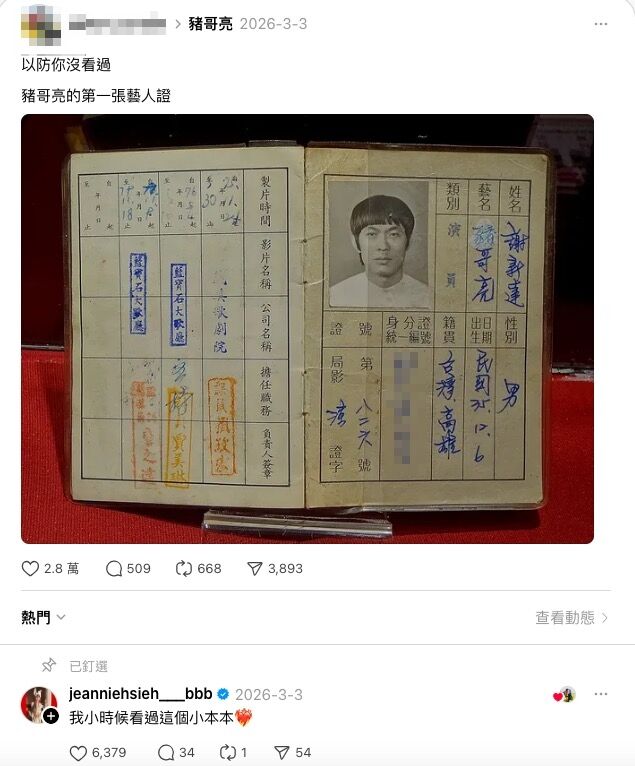 豬哥亮 2026-3-3
以防你沒看過
豬哥亮的第一張藝人證
姓名 謝新達 性別 男
藝名 豬哥亮 出生日期 民國35.12.6
類別 演員 籍貫 台灣高雄
身分證統一編號
證號 第八二六號
局影 證字
製片時間 影片名稱 公司名稱 擔任職務 負責人簽章
自 年 月 日
至 年 月 日 止
歌劇院
藍寶石大歌廳
藍寶石大歌廳
2.8 萬 509 668 3,893
熱門 查看動態
已釘選
jeanniehsieh___bbb 2026-3-3
我小時候看過這個小本本❤️‍🔥
6,379 34 1 54